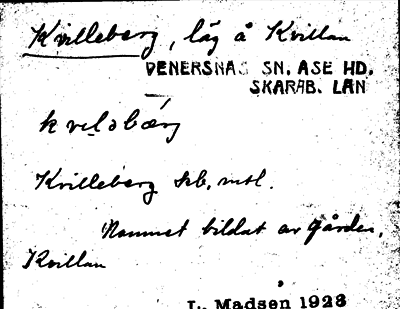 Kvilleberg, läg å Kvillan
VENERSNÄS SN. ÅSE HD.
SKARAB. LÄN
kvɩləbærj
Kvilleberg skb, mtl.
Namnet bildat av gården,
Kvillan
L. Madsen 1923